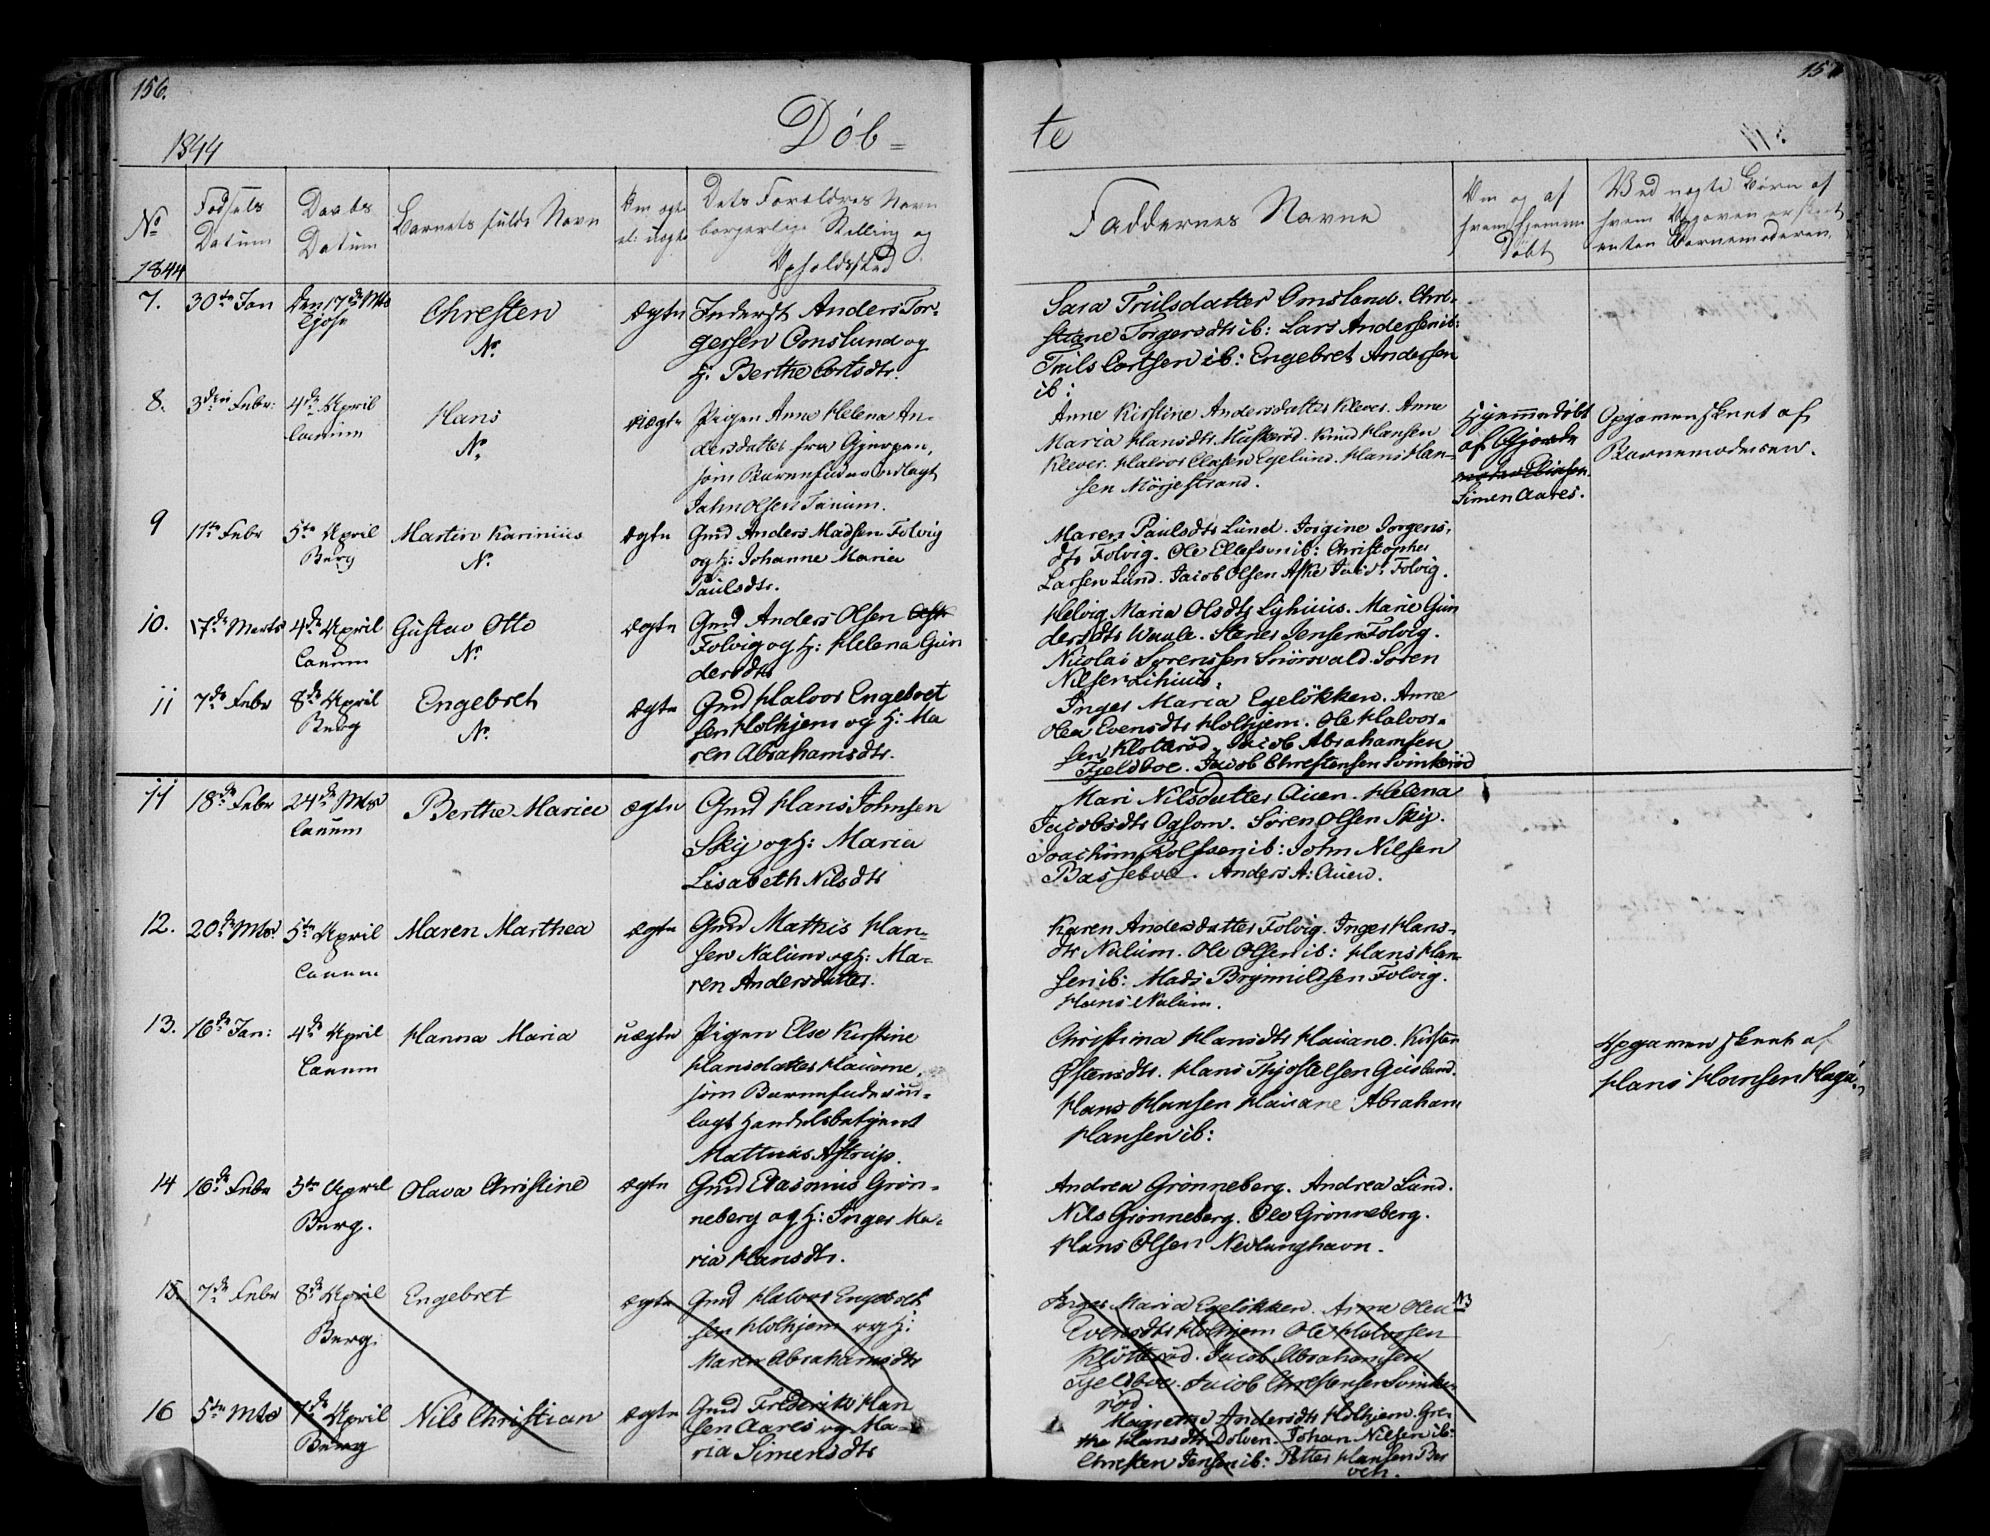 156.
157
1844
Døb=
te
No
1844
Fødsels
Datum
Daabs
Datum
Barnets fulde Navn
Om ægte
el: uægte
Dets Forældres Navn
borgerlige Stilling og
Opholdssted
Faddernes Navne
Om og af
hvem hjemme
Døbt
Ved uægte Børn af
hvem Opgaven er skeet
enten Barnemoderen,
7.
30te Jan
Den 17de Mts
Tjose
Chresten
No
ægte
Inderst Anders Tor-
gersen Omslund og
H. Berthe Cortsdtr.
Sara Trulsdatter Omsland. Chri-
stiane Torgersdtr ib: Lars Andersen ib:
Truls Cortsen ib: Engebret Andersen
ib:
8.
3die Febr:
4de April
Canum
Hans
No
uægte
Pigen Anne Helena An-
dersdatter fra Gjerpen,
som Barnefader udlagt
John Olsen Tanum.
Anne Kirstine Andersdatter Klever. Anne
Maria Hansdtr. Knud Hansen
Klever. Halvor Olafsen Eyelund. Hans Han-
sen Mørjestrand.
Hjemmedøbt
af
Simen Aares.
Opgaven skeet af
Barnemoderen.
9
11te Febr
5te April
Berg
Martin Karinius
No
ægte
Gmd Anders Madsen Folvig
og H: Johanne Maria
Paulsdtr.
Maren Paulsdtr Lund. Jorgine Jorgens-
dtr Folvig. Ole Ellefsen ib: Christopher
Larsen Lund. Jacob Olsen Aske Folvig.
10.
17de Marts
4de April
Canum
Gustav Otto
No
ægte
Gmd Anders Olsen
Folvig og H: Helena Gun
dersdtr
Helvig Maria Olsdtr Lihuus. Marie Gun
dersdtr Waale. Stener Jensen Folvig.
Nicolai Sørenssen Snørsvald. Søren
Nilsen Lihuus.
11
7de Febr
8de April
Berg
Engebret
No
ægte
Gmd Halvor Engebret
sen Holhjem og H: Ma
ren Abrahamsdtr.
Inger Maria Egeløkken. Anne
Olea Evensdtr Holhjem. Ole Halvor-
sen Kløtterød. Jacob Abrahamsen
Fjeldboe. Jacob Chrestensen Svinkerød
11
18de Febr
24de Mts
Canum
Berthe Maria
ægte
Gmd Hans Johnsen
Skij og H: Maria
Lisabeth Nilsdtr
Mari Nilsdatter Auen. Helena
Jacobsdtr Ogsom. Søren Olsen Skij.
Joachim Rolfsen ib: John Nilsen
Basseboe. Anders A: Auen.
12.
20de Mts
5te April
Canum
Maren Marthea
ægte
Gmd Mathis Han-
sen Nalum og H: Ma-
ren Andersdatter.
Karen Andersdatter Folvig. Inger Hans-
dtr Nalum. Ole Olsen ib: Hans Han-
sen ib: Mads Brynnildsen Folvig.
Hans Nalum.
13.
16de Jan:
4de April
Canum
Hanna Maria
uægte
Pigen Else Kirstine
Hansdatter Hauane,
som Barnefader ud-
lagt Handelsbetjent
Mathias Astrup.
Christina Hansdtr Hauane. Kirsten
Østensdtr. Hans Thjostelsen Guslund.
Hans Hansen Hauane. Abraham
Hansen ib:
Opgaven skeet af
Hans Hansen
14
16de Febr
5te April
Berg.
Olava Christine
ægte
Gmd Erasmus Grøn-
neberg og H: Inger Ma-
ria Hansdtr.
Andrea Grønneberg. Andrea Lund.
Nils Grønneberg. Ole Grønneberg.
Hans Olsen Nevlunghavn.
15.
7de Febr
8de April
Berg.
Engebret
ægte
Gmd Halvor Engebret
sen Holhjem og H:
Maren Abrahamsdtr
Inger Maria Egeløkken. Anne Olea
Evensdtr Holhjem Ole Halvorsen
Kløtterød. Jacob Abrahamsen
Fjeldboe. Jacob Chrestensen Svinke-
rød.
16
5te Mts
7de April
Berg
Nils Christian
ægte
Gmd Frederik Han
sen Aares og Ma-
ria Simensdtr
Margrethe Andersdtr Holhjem. Gre-
the Hansdtr Dolven. Johan Nilsen ib:
Chresten Jensen ib: Petter Hansen Ber